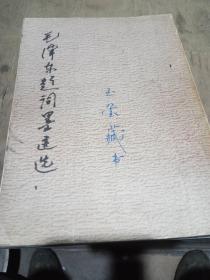 毛泽东诗词墨迹选
玉梁藏书